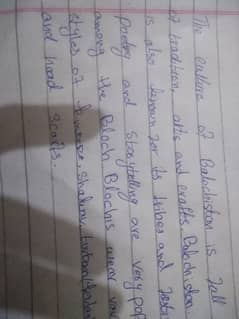 The culture of Balochistan is full
of tradition, arts and crafts Balochistan
is also known for its tribes and
Poetry and storytelling are very pop
among the Baloch Blochis wear
styles of
and head scarfs.